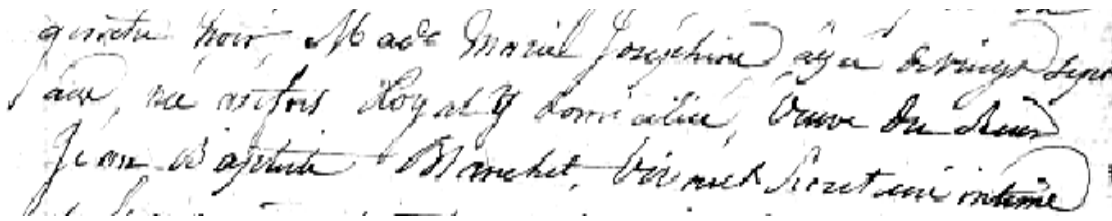 Made Marie Joséphine âgée de vingt sept
ans, née au fort Royal y domiciliée, veuve du Sieur
Jean Baptiste Blanchet, vivant Secrétaire intime